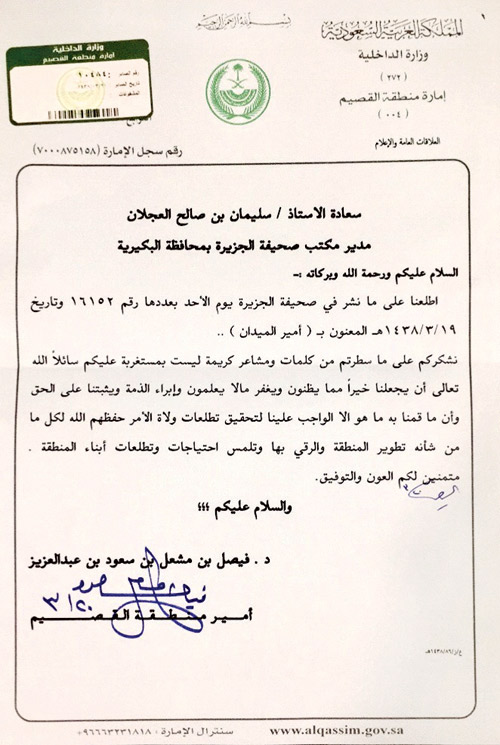 بسم الله الرحمن الرحيم
المملكة العربية السعودية
وزارة الداخلية
(٢٧٢)
إمارة منطقة القصيم
(٠٠٤)
العلاقات العامة والإعلام
وزارة الداخلية
امارة منطقة القصيم
رقم الصادر :٩٠٤٨٤
تاريخ الصادر
المشفوعات
رقم سجل الإمارة (٧٠٠٠٨٧٥١٥٨)
سعادة الاستاذ / سليمان بن صالح العجلان
مدير مكتب صحيفة الجزيرة بمحافظة البكيرية
السلام عليكم ورحمة الله وبركاته :-
اطلعنا على ما نشر في صحيفة الجزيرة يوم الأحد بعددها رقم ١٦١٥٢ وتاريخ
١٤٣٨/٣/١٩هـ المعنون بـ ( أمير الميدان ) ..
نشكركم على ما سطرتم من كلمات ومشاعر كريمة ليست بمستغربة عليكم سائلاً الله
تعالى أن يجعلنا خيراً مما يظنون ويغفر مالا يعلمون وإبراء الذمة ويثبتنا على الحق
وأن ما قمنا به ما هو الا الواجب علينا لتحقيق تطلعات ولاة الأمر حفظهم الله لكل ما
من شأنه تطوير المنطقة والرقي بها وتلمس احتياجات وتطلعات أبناء المنطقة .
متمنين لكم العون والتوفيق.
والسلام عليكم ؛؛؛
د . فيصل بن مشعل بن سعود بن عبدالعزيز
٣/٢٠
أمير منطقة القصيم
سنترال الإمارة : ٩٦٦٦٣٢٣١٨١٨+
www.alqassim.gov.sa